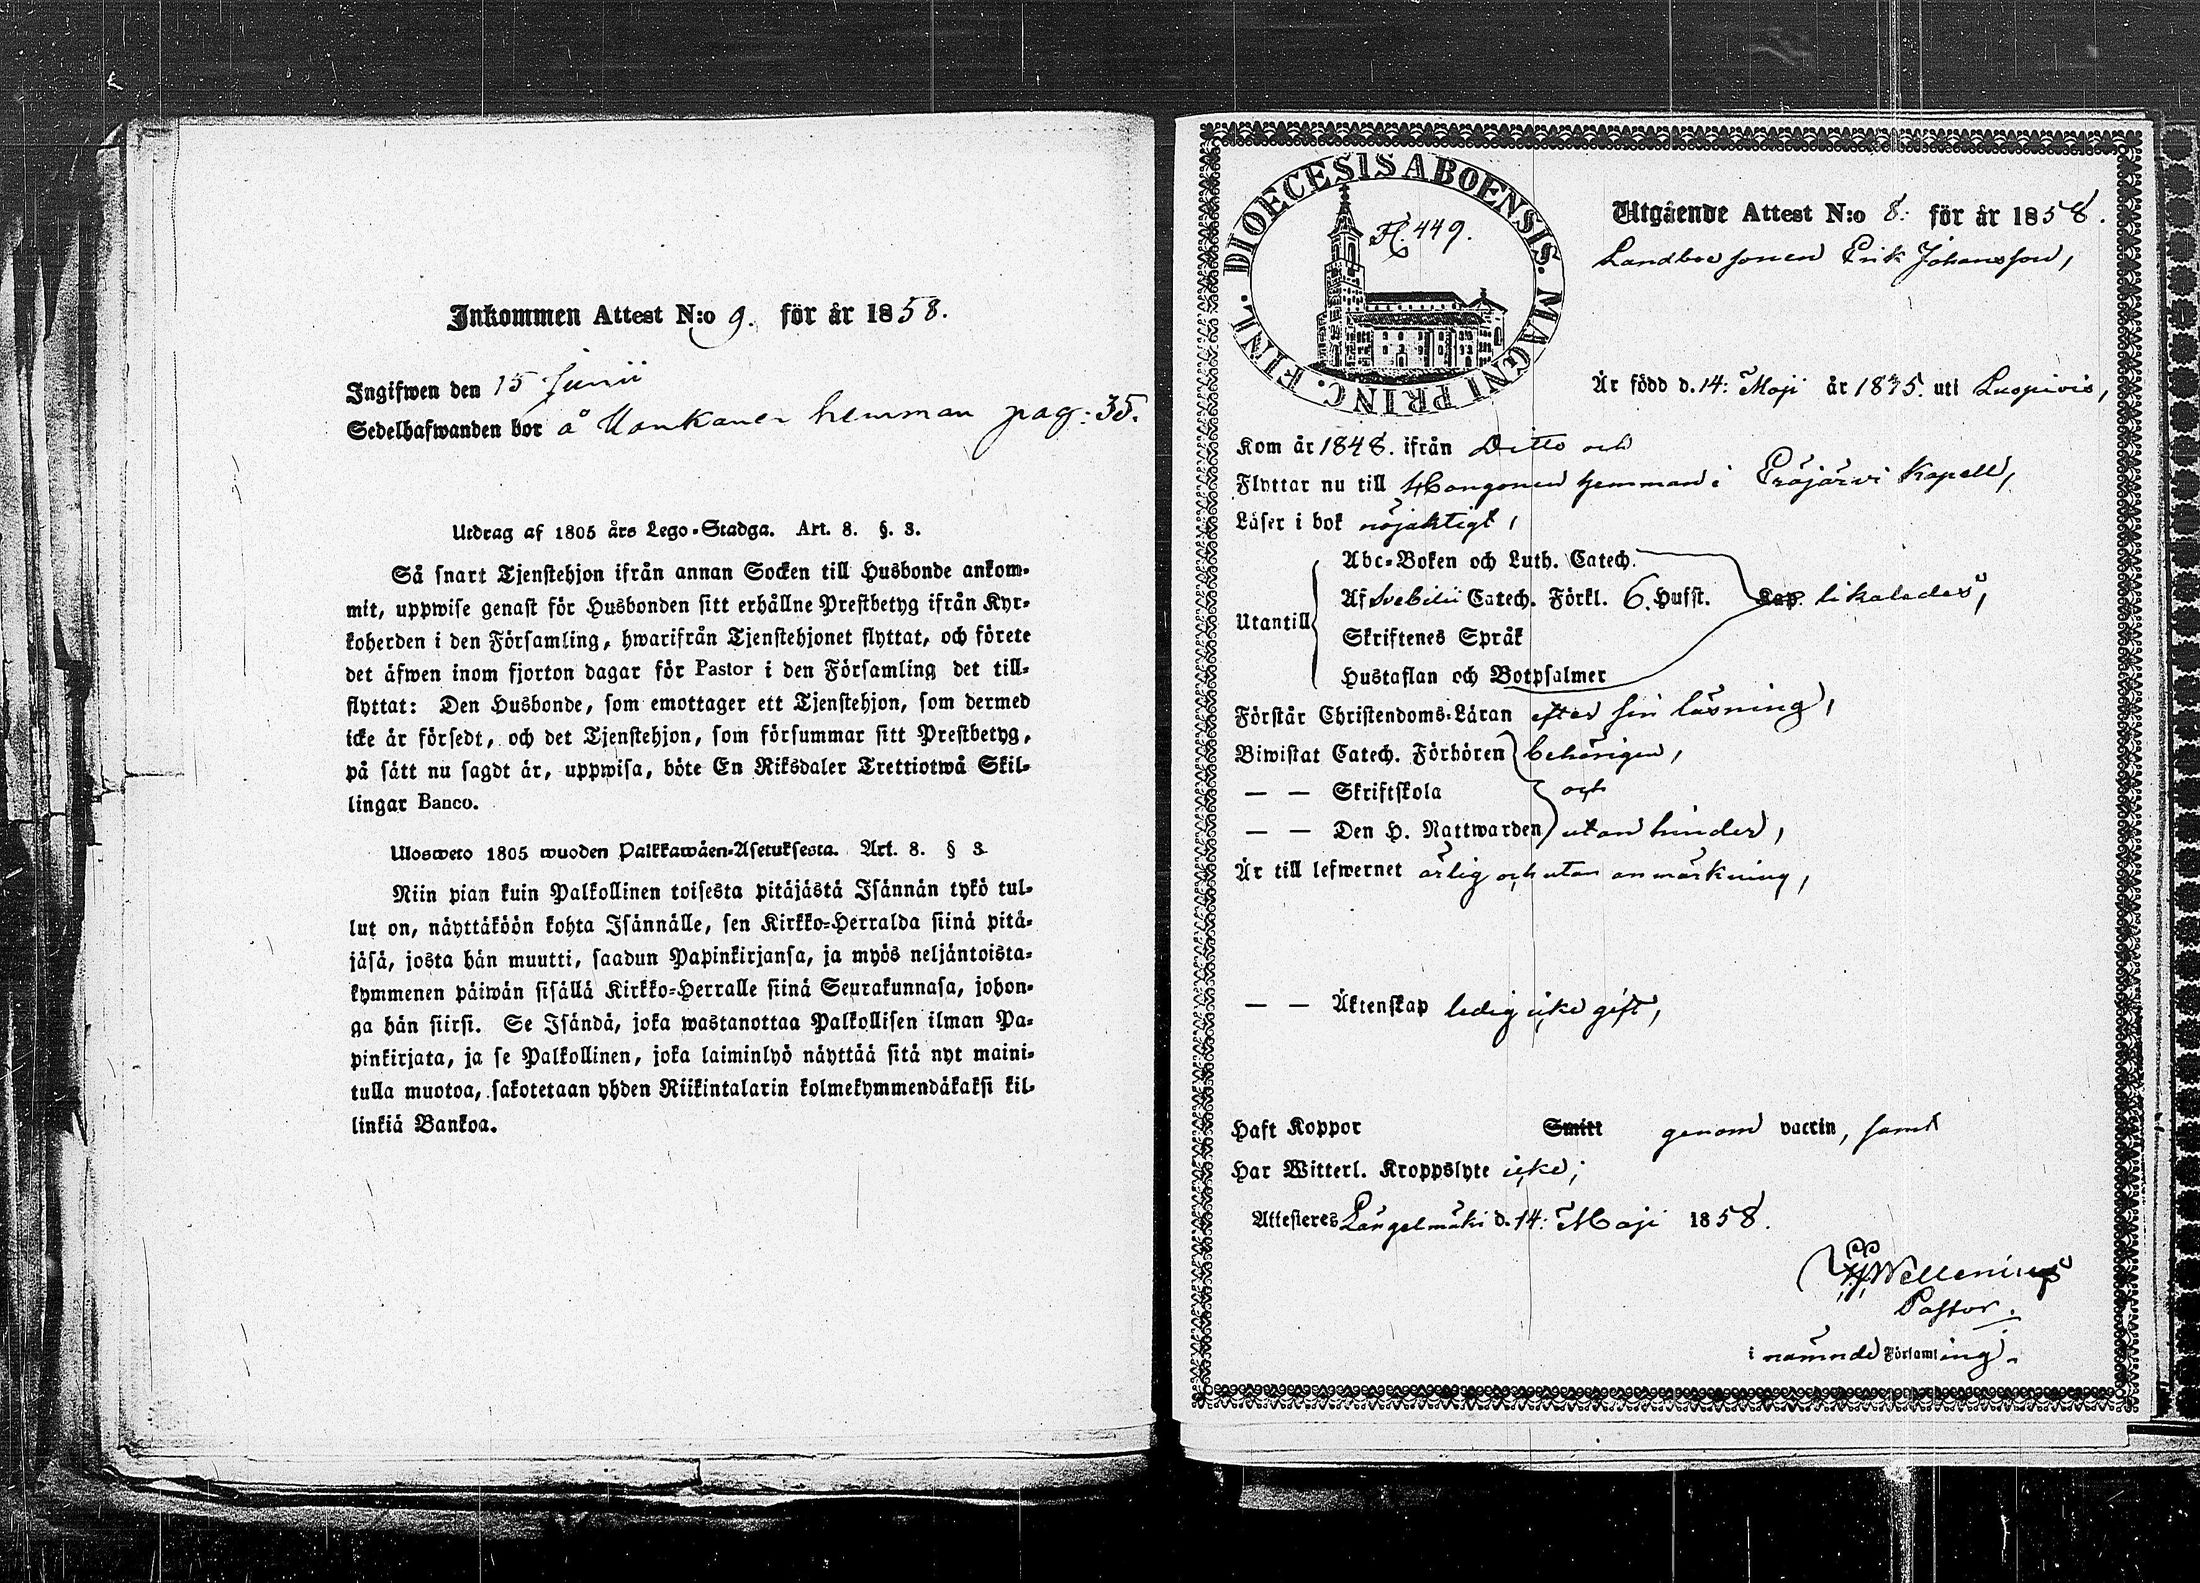 Inkommen Attest N:o 9. för år 1858.
Ingifwen den 15 Junii
Sedelhafwanden bor å hemman pag: 35.
Utdrag af 1805 års Lego-Stadga. Art. 8. §. 3.
Så snart Tjenstehjon ifrån annan Socken till Husbonde ankom-
mit, uppwise genast för Husbonden sitt erhållne Prestbetyg ifrån Kyr-
koherden i den Församling, hwarifrån Tjenstehjonet flyttat, och förete
det äfwen inom fjorton dagar för Pastor i den Församling det till-
flyttat: Den Husbonde, som emottager ett Tjenstehjon, som dermed
icke är försedt, och det Tjenstehjon, som försummar sitt Prestbetyg,
på sätt nu sagdt är, uppwisa, böte En Riksdaler Trettiotwå Skil-
lingar Banco.
Ulosweto 1805 wuoden Palkkawäen-Asetuksesta. Art. 8. § 3
Niin pian kuin Palkollinen toisesta pitäjästä Isännän tykö tul-
lut on, näyttäköön kohta Isännälle, sen Kirkko-Herralda siinä pitä-
jäsä, josta hän muutti, saadun Papinkirjansa, ja myös neljäntoista-
kymmenen päiwän sisällä Kirkko-Herralle siinä Seurakunnasa, johon-
ga hän siirsi. Se Isändä, joka wastanottaa Palkollisen ilman Pa-
pinkirjata, ja se Palkollinen, joka laiminlyö näyttää sitä nyt maini-
tulla muotoa, sakotetaan yhden Riikintalarin kolmekymmendäkaksi kil-
linkiä Bankoa.
DIOECESIS ABOENSIS. MAGNI PRINC. FINL.
449.
Utgående Attest N:o 8. för år 1858.
Landboe sonen Erik Johansson,
Är född d. 14: Maji år 1835. uti
Kom år 1848. ifrån Ditto och
Flyttar nu till hemman i Eräjärvi Kapell,
Läser i bok nöjaktigt,
Abc-Boken och Luth. Catech.
Utantill Af Svebilii Catech. Förkl. 6. Husst. Kap. likaledes,
Skriftenes Språk
Hustaflan och Botpsalmer
Förstår Christendoms-Läran efter sin läsning,
Biwistat Catech. Förhören behörigen,
— — Skriftskola och
— — Den H. Nattwarden utan hinder,
Är till lefwernet ärlig och utan anmärkning,
— — Äktenskap ledig icke gift,
Haft Koppor Smitt genom vaccin, samt
Har Witterl. Kroppslyte icke;
Attesteres Längelmäki d. 14: Maji 1858.
Wellenius
Pastor.
i nämnde Församling.